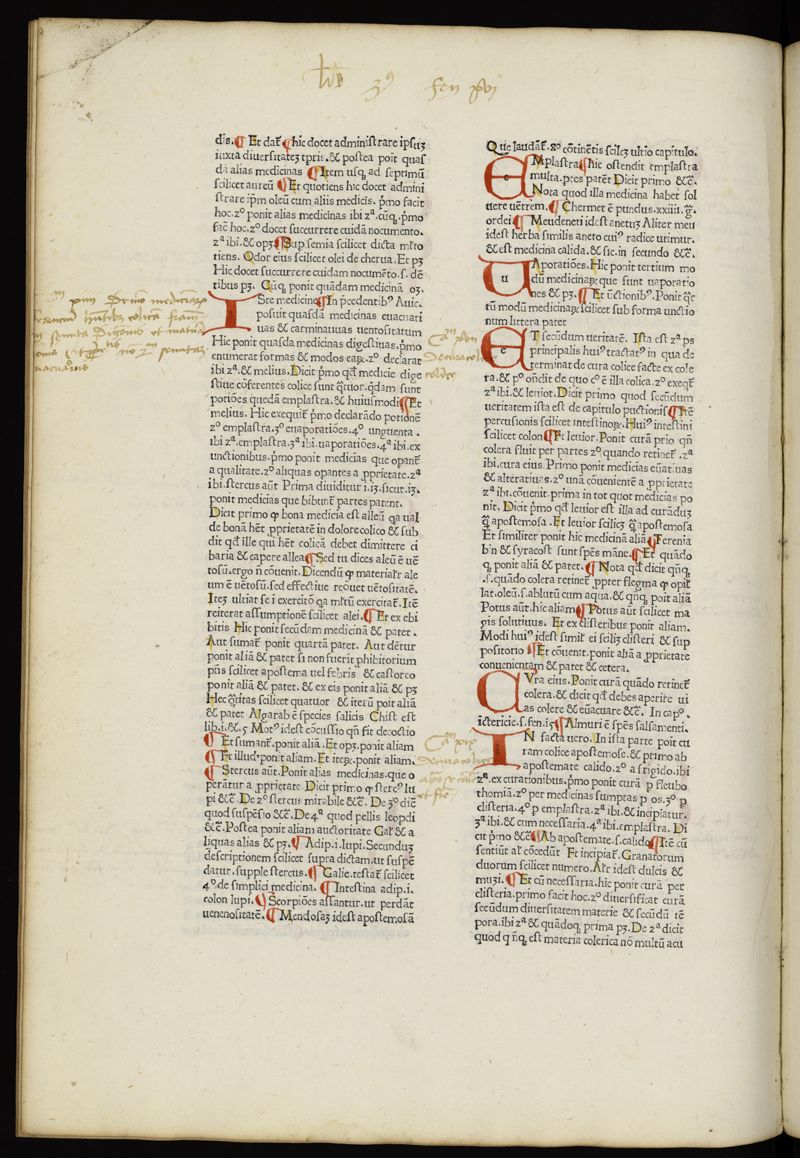 lib 3⁹ fen xvi
dis. ¶ Et dat̃ ¶ hic docet adminiſtrare ipſuȝ
iuxta diuerſitateȝ tp̃ris. & poſtea põit quaſ
dã alias medicinas ¶ Item uſq; ad ſeprimũ
ſcilicet aureũ ¶ Et quotiens hic docet admini
ſtrare ip̃m oleũ cum aliis medicis. p̃mo facit
hoc. 2⁰ ponit alias medicinas ibi 2ª. cũq;. p̃mo
fac̃ hoc. 2⁰ docet ſuccurrere cuidã nocumento.
2ª ibi. & opȝ ¶ Sup ſemia ſcilicet dicta mĩto
tiens. Odor eius ſcilicet olei de cherua. Et pȝ
Hic docet ſuccurrere cuidam nocumẽto. ſ. dẽ
tibus pȝ. Cũq; ponit quãdam medicinã oȝ.
ISte medicine ¶ In p̃cedentib⁹ Auic.
poſuit quaſdã medicinas euacuati
uas & carminatiuas uentoſitatum
Hic ponit quaſda medicinas digeſtiuas. p̃mo
enumerat formas & modos eaȝ. 2⁰ declarat
ibi 2ª. & melius. Dicit p̃mo qđ medicie dige
ſtiue cõferentes colice ſunt q̃tuor. q̃dam ſunt
potiões quedã emplaſtra. & huiuſmodi ¶ Et
melius. Hic exequit̃ p̃mo declarãdo potionẽ
2⁰ emplaſtra. 3⁰ euaporatiões. 4⁰ unguenta.
ibi 2ª. emplaſtra. 3ª ibi. uaporatiões. 4ª ibi. ex
unctionibus. p̃mo ponit medicias que opant̃
a qualitate. 2⁰ aliquas opantes a p̃prietate. 2ª
ibi. ſtercus aũt. Prima diuiditur i. 13. ſicut. 13.
ponit medicias que bibunt̃ partes patent.
Dicit primo ꝙ bona medicia eſt alleũ qa ual
de bonã hẽt p̃prietatẽ in dolore colico & ſub
dit qđ ille qui hẽt colicã debet dimittere ci
baria & capere allea ¶ Sed tu dices aleũ ẽ uẽ
toſũ. ergo ñ cõuenit. Dicendũ ꝙ materialr̃ ale
um ẽ uẽtoſũ. ſed effectiue reouet uẽtoſitatẽ.
Iteȝ ultiat ſe i exercitõ qa mĩtũ exercitat̃. Itẽ
reiterat aſſumptionẽ ſcilicet alei. ¶ Et ex ebi
bitis Hic ponit ſecũdam medicinã & patet.
Aut ſumat̃ ponit quartã patet. Aut dẽtur
ponit aliã & patet ſi non fuerit phibitorium
pñs ſcilicet apoſtema uel febris & caſtoreo
ponit aliã & patet. & ex eis ponit aliã & pȝ
Hec q̃titas ſcilicet quatuor & iterũ poit aliã
& patet Algarab ẽ ſpecies ſalicis Chiſt eſt
lib. i. & . 5 Mot⁹ ideſt cõcuſſio qñ fit de octio
¶ Et ſumant̃. ponit aliã. Et opȝ. ponit aliam
¶ Et illud. ponit aliam. Et iteȝ. ponit aliam.
¶ Stercus aũt. Ponit alias medicinas. que o
perãtur a p̃prietate Dicit primo ꝙ ſterc⁹ lu
pi &c̃. De 2⁰ ſtercus mirabile &c̃. De 3⁰ diẽ
quod ſuſpẽſio &c̃. De 4ª quod pellis leopdi
&c̃. Poſtea ponit aliam auctoritate Gal̃ & a
liquas alias & pȝ. ¶ Adip. i. lupi. Secunduȝ
deſcriptionem ſcilicet ſupra dictam. ut ſuſpẽ
datur. ſupple ſtercus. ¶ Galic. teſtat̃ ſcilicet
4⁰ de ſimplici medicina. ¶ Inteſtina adip. i.
colon lupi. ¶ Scorpiões aſſantur. ut perdãt
uenenoſitatẽ. ¶ Mendoſaȝ ideſt apoſtemoſã
Que laudãt̃. 2⁰ cõtinẽtis ſcilȝ ultio capitulo.
EMplaſtra ¶ hic oſtendit emplaſtra
multa. p̃tes patẽt Dicit primo &c̃.
Nota quod illa medicina habet ſol
uere uẽtrem. ¶ Chermet ẽ pundus. xxiiii. g̃.
ordei ¶ Meudeneti ideſt anetuȝ Aliter meu
ideſt herba ſimilis aneto cui⁹ radice utimur.
& eſt medicina calida. & ſic. in ſecundo &c̃.
UAporatiões. Hic ponit tertium mo
dũ medicinaȝ que ſunt uaporatio
nes & pȝ. ¶ Et ũctionib⁹. Ponit q̃r
tũ modũ medicinaȝ ſcilicet ſub forma unctio
num littera patet
ET ſecũdum ueritatẽ. Iſta eſt 2ª ps
principalis hui⁹ tractat⁹ in qua de
terminat de cura colice facte ex cole
ra. & p⁰ oñdit de quo c⁰ ẽ illa colica. 2⁰ exeqt̃
2ª ibi. & leuior. Dicit primo quod ſecũdum
ueritatem iſta eſt de capitulo puctionis ¶ Itẽ
percuſionis ſcilicet inteſtinoȝ. Hui⁹ inteſtini
ſcilicet colon ¶ Et leuior. Ponit curã prio qñ
colera fluit per partes 2⁰. quando retinet̃. 2ª
ibi. cura eius. Primo ponit medicias euãtiuas
& alteratiuas. 2⁰ unã cõuenientẽ a p̃prietate
2ª ibi. cõuenit. prima in tot quot medicias po
nit. Dicit p̃mo qđ leuior eſt illa ad curãduȝ
q̃ apoſtemoſa. Et leuior ſcilicȝ q̃ apoſtemoſa
Et ſimiliter ponit hic medicinã aliã ¶ Ferenia
bñ & ſyracoſt ſunt ſpẽs mãne. ¶ Et quãdo
q; ponit aliã & patet. ¶ Nota qđ dicit qñq;
. ſ. quãdo colera retinet̃ ppter flegma ꝙ opit̃
lat. oleũ. ſ. ablutũ cum aqua. & qñq; poit aliã
Potus aũt. hic aliam ¶ Potus aũt ſcilicet ma
gis ſolutiuus. Et ex cliſteribus ponit aliam.
Modi hui⁹ ideſt ſimil̃ ei ſcilȝ cliſteri & ſup
poſitorio ¶ Et cõuenit. ponit aliã a p̃prietate
conuenientam & patet & cetera.
CUra eius. Ponit curã quãdo retinet̃
colera. & dicit qđ debes aperire ui
as colere & euacuare &c̃. In cap⁰.
ictericie. ſ. fen. i5 ¶ Almuri ẽ ſpẽs ſalſamenti.
IN facta uero. In iſta parte poit cu
ram colice apoſtemoſe. & primo ab
apoſtemate calido. 2⁰ a frigido. ibi
2ª. ex curationibus. p̃mo ponit curã p fleubo
thomiã. 2⁰ per medicinas ſumptas p os. 3⁰ p
cliſteria. 4⁰ p emplaſtra. 2ª ibi. & incipiatur.
3ª ibi. & cum neceſſaria. 4ª ibi. emplaſtra. Di
cit p̃mo &c̃ ¶ Ab apoſtemate. ſ. calido ¶ Itẽ cũ
ſentiũt al̃ cõcedũt Et incipiat̃. Granatorum
duorum ſcilicet numero. Al̃r ideſt dulcis &
muȝi. ¶ Et cũ neceſſaria. hic ponit curã per
cliſteria. primo facit hoc. 2⁰ diuerſificat curã
ſecũdum diuerſitatem materie & ſecũdũ tẽ
pora. ibi 2ª & quãdoq; prima pȝ. De 2ª dicit
quod q ñq; eſt materia colerica nõ multũ acu